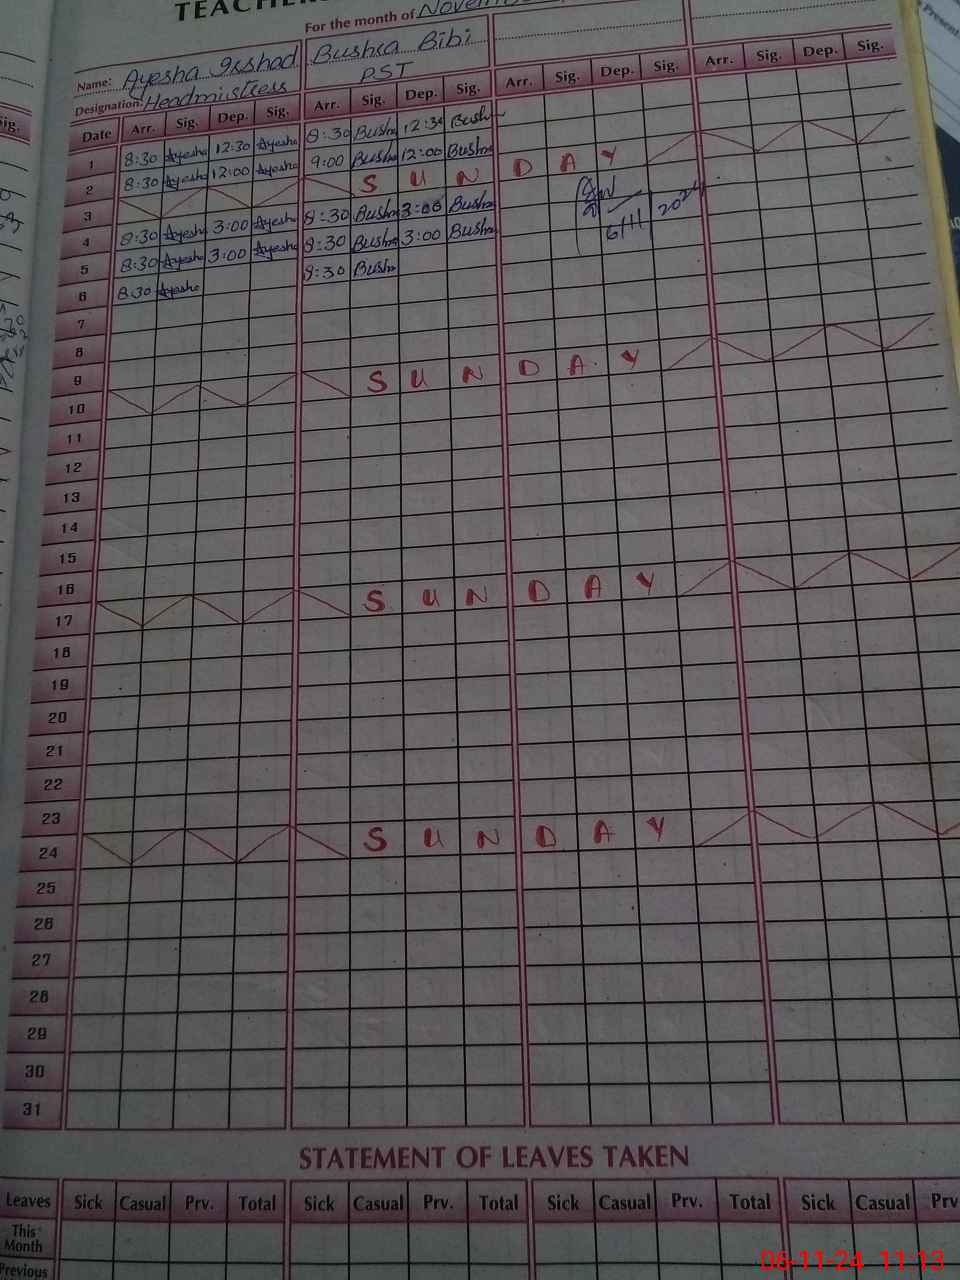 TEACHER
For the month of November
Name: Ayesha Irshad Bushra Bibi
Designation: Headmistress PST
Date Arr. Sig. Dep. Sig. Arr. Sig. Dep. Sig. Arr. Sig. Dep. Sig. Arr. Sig. Dep. Sig.
1 8:30 Ayesha 12:30 Ayesha 8:30 Bushra 12:30 Bushra
2 8:30 Ayesha 12:00 Ayesha 9:00 Bushra 12:00 Bushra
3 S U N D A Y
4 8:30 Ayesha 3:00 Ayesha 8:30 Bushra 3:00 Bushra
5 8:30 Ayesha 3:00 Ayesha 8:30 Bushra 3:00 Bushra
6 8:30 Ayesha 8:30 Bushra
6/11/2024
7
8
9
10 S U N D A Y
11
12
13
14
15
16
17 S U N D A Y
18
19
20
21
22
23
24 S U N D A Y
25
26
27
28
29
30
31
STATEMENT OF LEAVES TAKEN
Leaves Sick Casual Prv. Total Sick Casual Prv. Total Sick Casual Prv. Total Sick Casual Prv
This Month
Previous
06-11-24 11:13
Present
Sig.